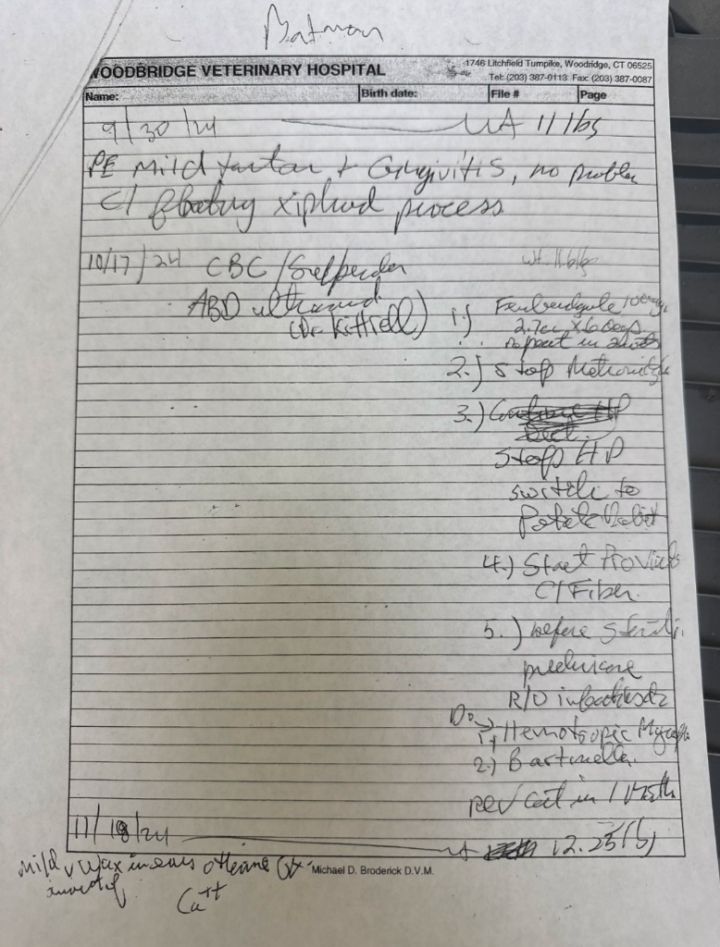 Batman
WOODBRIDGE VETERINARY HOSPITAL
1746 Litchfield Turnpike, Woodridge, CT 06525
Tel: (203) 387-0113 Fax: (203) 387-0087
Name: Birth date: File # Page
9/30/24 11 lbs
PE Mild tartar + Gingivitis, no problem
C/ floating xiphoid process
10/17/24 CBC/Superchem wt. 11 lbs
ABD ultrasound
(Dr. Kittrell)
1.) Fenbendazole 100mg/
x 6 days
repeat in
2.) Stop Metronidazole
3.)
Stop HP
switch to
Potato Rabbit
4.) Start Proviable
C/ Fiber
5.) before
prednisone
R/O infectious dz
Do →
1.) Hemotropic Mycoplasma
2.) Bartonella
rev cat in 1 month
11/18/24 12.25 lbs
Mild wax in ears otherwise
Michael D. Broderick D.V.M.